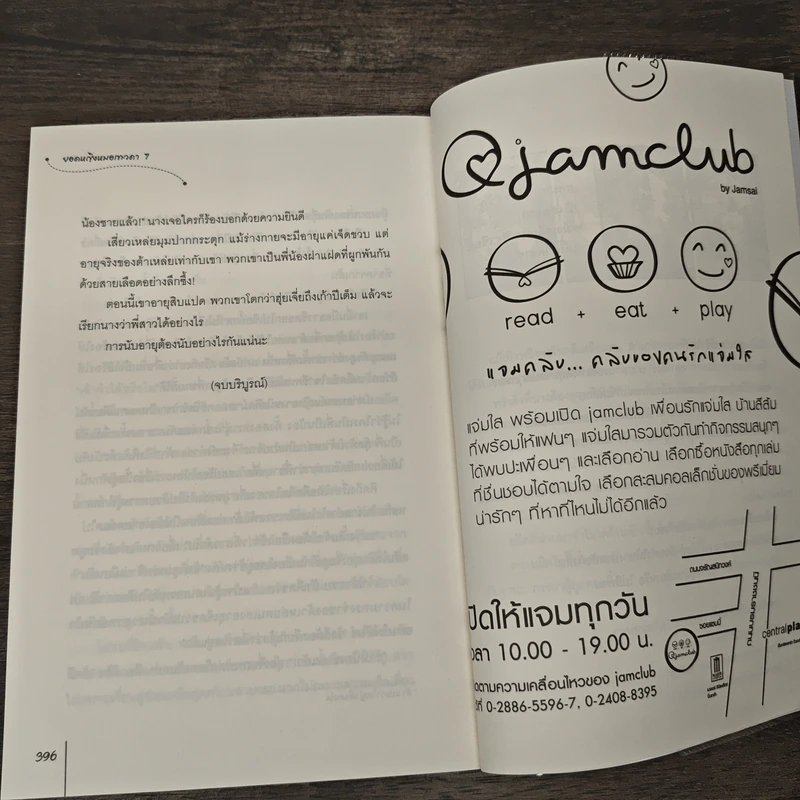 ยอดหญิงหมอเทวดา 7
น้องชายแล้ว!” นางเจอใครก็ร้องบอกด้วยความยินดี
เสี่ยวเหล่ยมุมปากกระตุก แม้ร่างกายจะมีอายุแค่เจ็ดขวบ แต่
อายุจริงของต้าเหล่ยเท่ากับเขา พวกเขาเป็นพี่น้องฝาแฝดที่ผูกพันกัน
ด้วยสายเลือดอย่างลึกซึ้ง!
ตอนนี้เขาอายุสิบแปด พวกเขาโตกว่าฮุ่ยเจี่ยถึงเก้าปีเต็ม แล้วจะ
เรียกนางว่าพี่สาวได้อย่างไร
การนับอายุต้องนับอย่างไรกันแน่นะ
(จบบริบูรณ์)
396
@jamclub
by Jamsai
read + eat + play
แจมคลับ... คลับของคนรักแจ่มใส
แจ่มใส พร้อมเปิด jamclub เพื่อนรักแจ่มใส บ้านสีส้ม
ที่พร้อมให้แฟนๆ แจ่มใสมารวมตัวกันทำกิจกรรมสนุกๆ
ได้พบปะเพื่อนๆ และเลือกอ่าน เลือกซื้อหนังสือทุกเล่ม
ที่ชื่นชอบได้ตามใจ เลือกสะสมคอลเล็กเชั่นของพรีเมี่ยม
น่ารักๆ ที่หาที่ไหนไม่ได้อีกแล้ว
ปิดให้แจมทุกวัน
วลา 10.00 - 19.00 น.
ตามความเคลื่อนไหวของ jamclub
ที่ 0-2886-5596-7, 0-2408-8395
ถนนจรัญสนิทวงศ์
ถนนบรมราชชนนี
ซอยแฮมมี่
@jamclub
centralpla